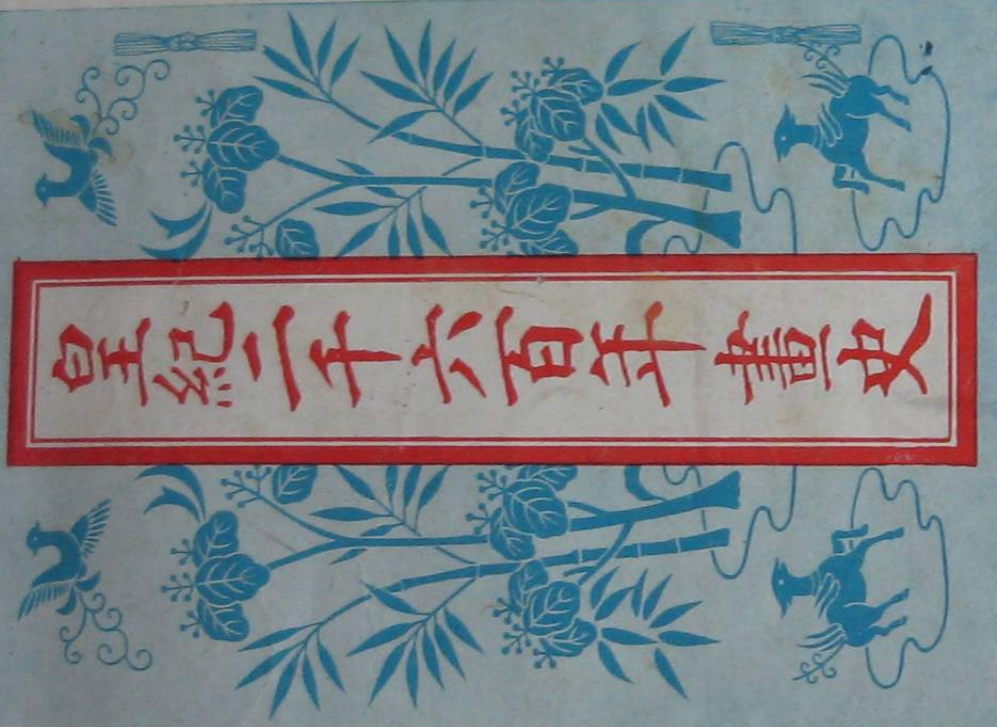 皇紀二千六百年畫史